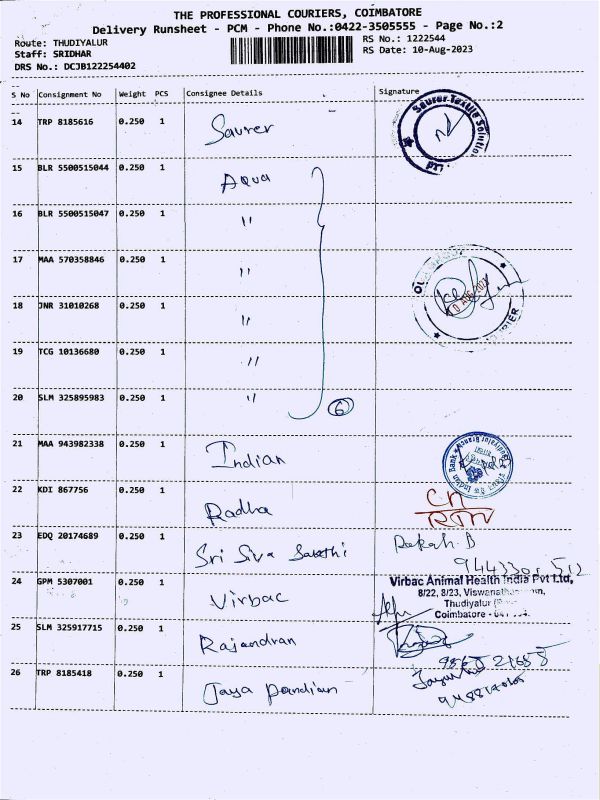 THE PROFESSIONAL COURIERS, COIMBATORE
Delivery Runsheet - PCM - Phone No.:0422-3505555 - Page No.:2
Route: THUDIYALUR
RS No.: 1222544
Staff: SRIDHAR
RS Date: 10-Aug-2023
DRS No.: DCJB122254402
S No Consignment No Weight PCS Consignee Details Signature
14 TRP 8185616 0.250 1 Saurer
Saurer Textile Solution
15 BLR 5500515044 0.250 1 Aqua
16 BLR 5500515047 0.250 1 "
17 MAA 570358846 0.250 1 "
18 JNR 31010268 0.250 1 "
19 TCG 10136680 0.250 1 "
20 SLM 325895983 0.250 1 " 6
21 MAA 943982338 0.250 1 Indian
Indian Bank
22 KDI 867756 0.250 1 Radha
23 EDQ 20174689 0.250 1 Sri Siva Sakthi
24 GPM 5307001 0.250 1 Virbac
Virbac Animal Health India Pvt Ltd,
8/22, 8/23,
Thudiyalur
Coimbatore -
25 SLM 325917715 0.250 1 Rajendran
26 TRP 8185418 0.250 1 Jaya pandian